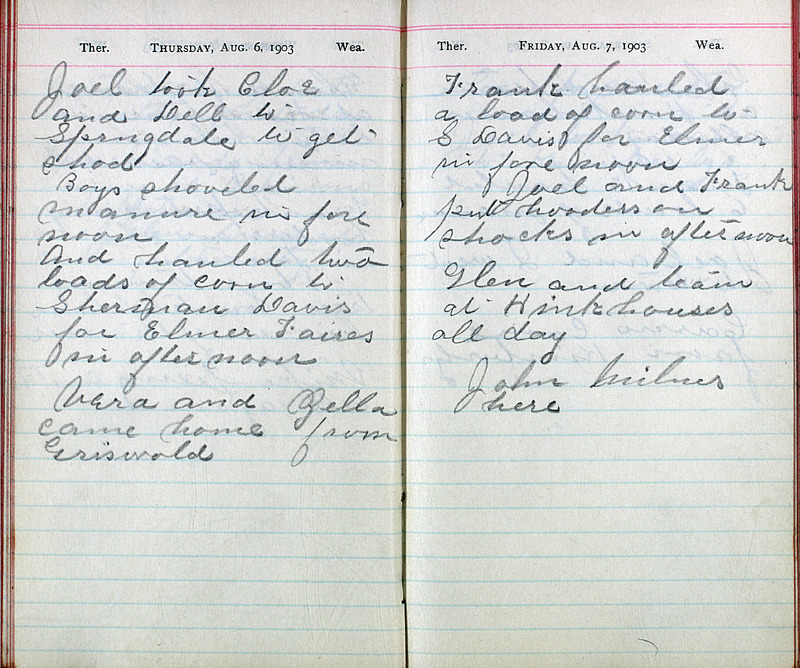 Ther. Thursday, Aug. 6, 1903 Wea.
Joel took Cloe
and Dell to
Sprngdale to get
shod
Boys shoveled
manure in fore
noon
And hauled two
loads of corn to
Sherman Davis
for Elmer Faires
in after noon
Vera and Zella
came home from
Griswold
Ther. Friday, Aug. 7, 1903 Wea.
Frank hauled
a load of corn to
S Davis for Elmer
in fore noon
Joel and Frank
put hooders on
shocks in after noon
Glen and team
at Kinkhouses
all day
John Milner
here